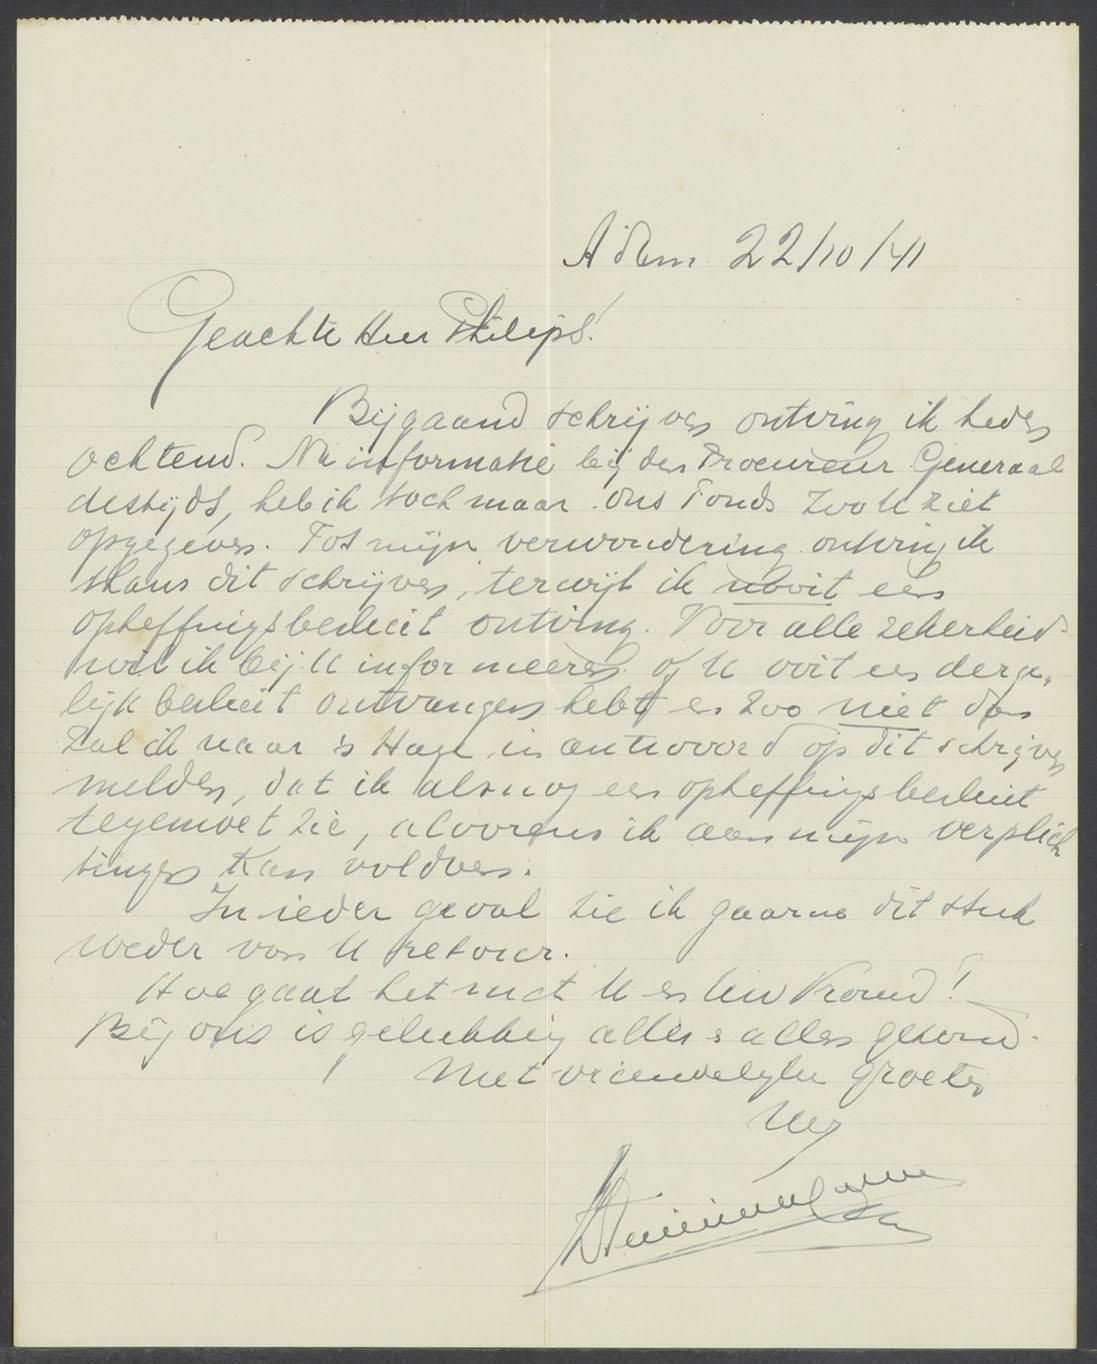 A'dam 22/10/41
Geachte Heer Philips!
Bijgaand schrijven ontving ik heden
ochtend. Na informatie bij den Procureur Generaal
destijds, heb ik toch maar ons Fonds zoo U ziet
opgegeven. Tot mijn verwondering ontving ik
thans dit schrijven, terwijl ik nooit een
opheffingsbesluit ontving. Voor alle zekerheid
wil ik bij U informeeren of U ooit een derge-
lijk besluit ontvangen hebt en zoo niet dan
zal ik naar 's Hage in antwoord op dit schrijven
melden, dat ik alsnog een opheffingsbesluit
tegemoet zie, alvorens ik aan mijn verplich
tingen kan voldoen.
In ieder geval zie ik gaarne dit stuk
weder van U retour.
Hoe gaat het met U en Uw Vrouw!
Bij ons is gelukkig alles alles gezond.
Met vriendelijke groeten
Uw